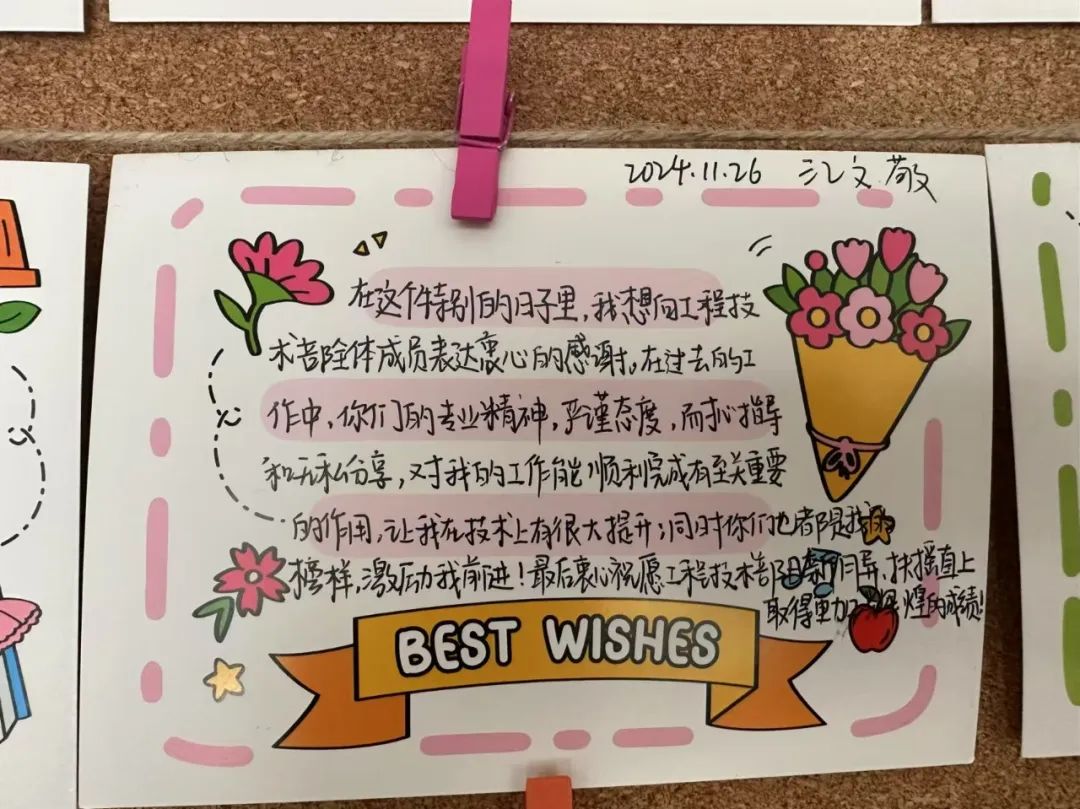 2024.11.26 江文敬
在这个特别的日子里,我想向工程技
术部全体成员表达衷心的感谢。在过去的工
作中,你们的专业精神,严谨态度,耐心指导
和无私分享,对我的工作能顺利完成有至关重要
的作用,让我在技术上有很大提升;同时你们也都是我的
榜样,激励我前进!最后衷心祝愿工程技术部日新月异,扶摇直上
取得更加辉煌的成绩!
BEST WISHES